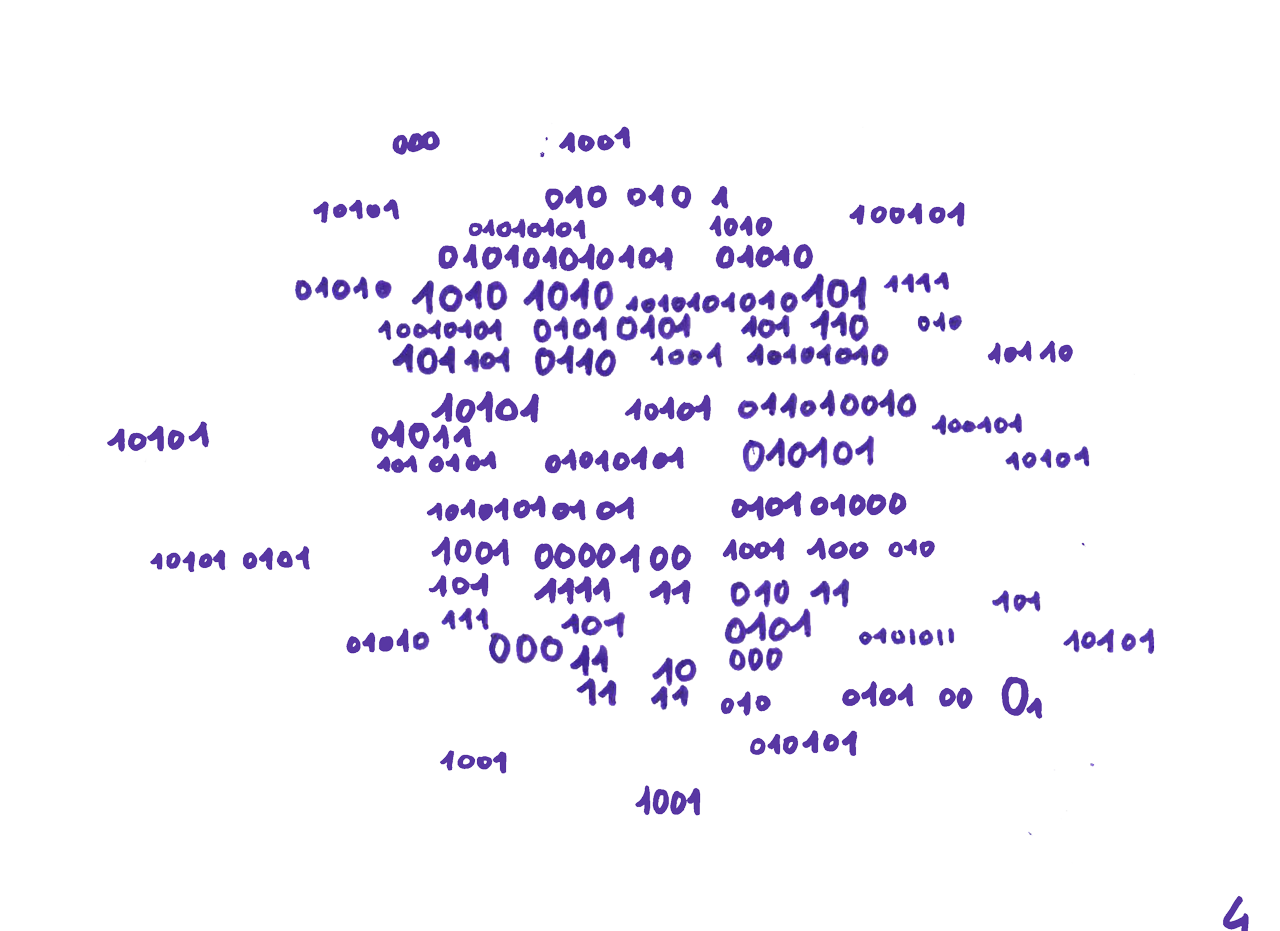 000 1001
010 010 1
10101 100101
01010101 1010
010101010101 01010
01010 1010 1010 1010101010 101 1111
10010101 01010101 101 110 010
101101 0110 1001 10101010 10110
10101 10101 011010010
10101 01011 100101
101 0101 01010101 010101 10101
1010101 01 01 010101000
1001 0000100 1001 100 010
10101 0101
101 1111 11 010 11 101
111 101 0101
01010 000 0101011 10101
11 10 000
11 11 010 0101 00 01
010101
1001
1001
4